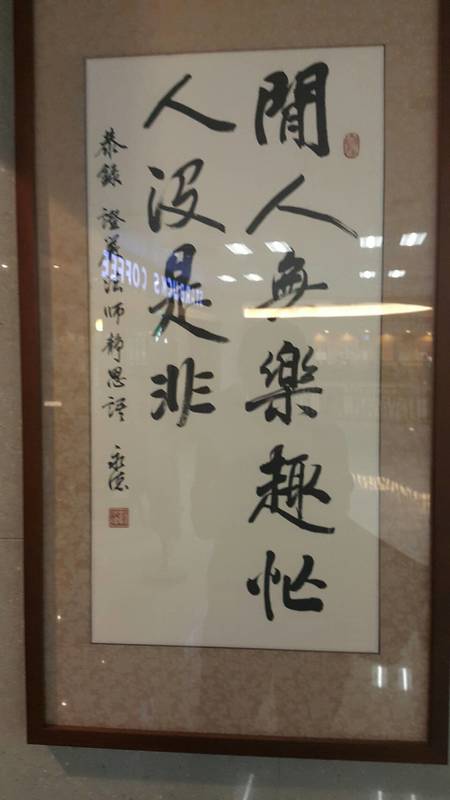 閒人無樂趣忙
人沒是非
恭錄 證嚴法師靜思語 永德
COFFEE